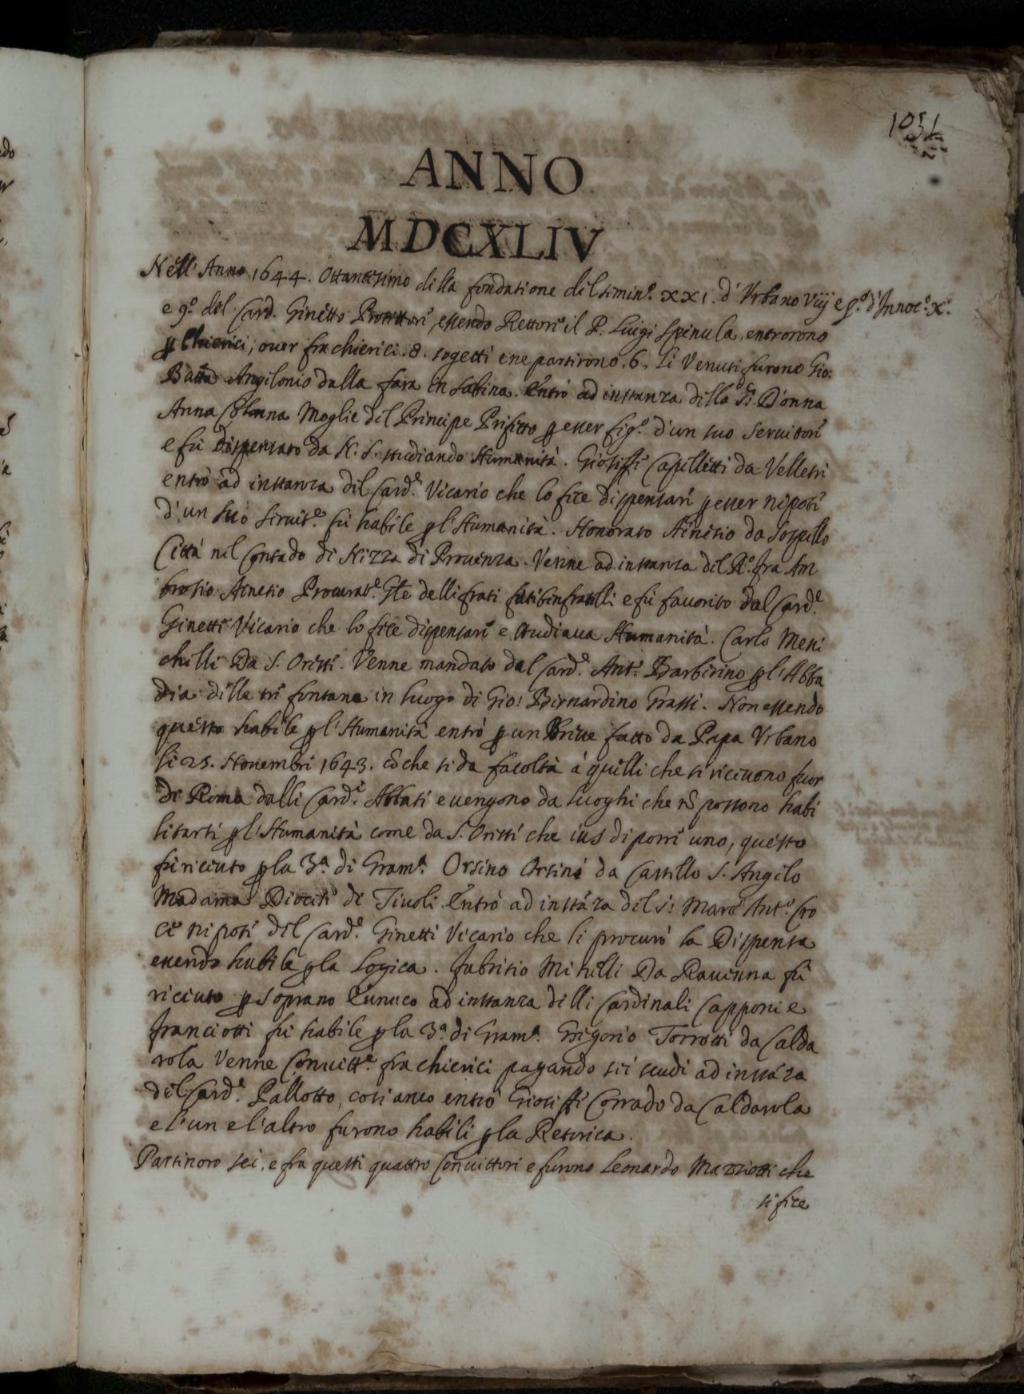 1051
ANNO
MDCXLIV
Nell' Anno 1644. Ottantesimo della fondatione del Semin.º XXI. d' Urbano Viij e p.º d'Innoc.º X.º
e 9.º del Card. Ginetto Protettore, essendo Rettore il P. Luigi Spinula, entrorono
ꝑ Chierici, over fra chierici .8. sogetti e ne partirono .6. Li Venuti furono Gio:
Batta Angilonio dalla fara in Sabina. Entrò ad instanza della S.ra Donna
Anna Colonna Moglie del Principe Prefetto ꝑ esser fig.º d'un suo Servitore
e fù dispensato da N. S. studiando Humanità. Gioseffe Capilletti da Velletri
entrò ad instanza del Card.e Vicario che lo fece dispensare ꝑ esser nipote
d'un suo Servit.e fù habile ꝑ l'Humanità. Honorato da Sospello
Città nel Contado di Nizza di Provenza. Venne ad instanza del R.º fra Am
brosio Procurat.e Gle delli frati fatibenfratelli e fù favorito dal Card.e
Ginetti Vicario che lo fece dispensare e studiava Humanità. Carlo Meni
chelli da S. Oreste. Venne mandato dal Card.e Ant.º Barberino ꝑ l'Abba
dia delle tre fontane in luogo di Gio: Bernardino Grassi. Non essendo
questo habile ꝑ l'Humanità entrò ꝑ un Breve fatto da Papa Urbano
li 25. Novembre 1643. cō che si dà facoltà à quelli che si ricevono fuor
di Roma dalli Card.i Abbati e vengono da luoghi che nō possono habi
litarsi ꝑ l'Humanità come da S. Oreste che ius di porre uno, questo
fù riceuto ꝑ la 3.a di Gram.a Orsino Orsini da Castello S. Angelo
Madama Diocesi di Tivoli. Entrò ad instāza del S.r Marc' Ant.º Cro
ce nipote del Card.e Ginetti Vicario che li procurò la Dispensa
essendo habile ꝑ la Logica. Fabritio Minelli da Ravenna fù
riceuto ꝑ Soprano Eunuco ad instanza delli Cardinali Capponi e
Franciotti fù habile ꝑ la 3.a di Gram.a Grigorio Torrotti da Calda
rola Venne Convitt.e fra chierici pagando sei scudi ad instāza
del Card.e Pallotto, così anco entrò Gioseffe Corrado da Caldarola
e l'un e l'altro furono habili ꝑ la Retorica.
Partinoro sei, e fra questi quattro Convittori e furono Leonardo Mazziotti che
si fece